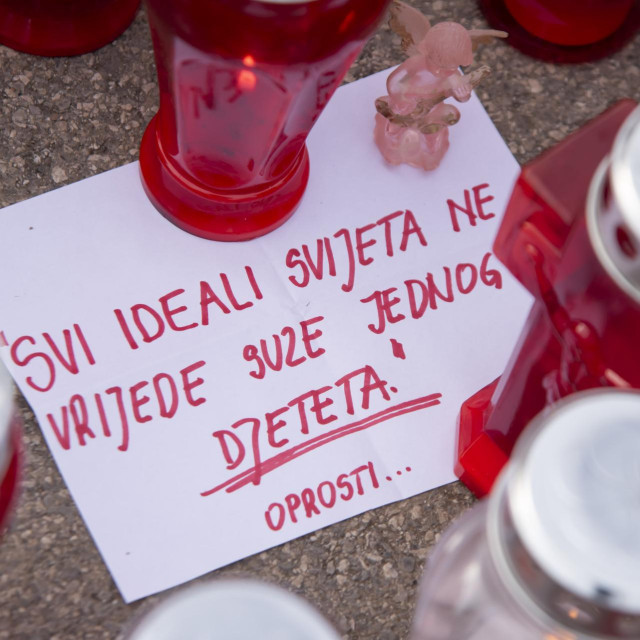 "SVI IDEALI SVIJETA NE
VRIJEDE SUZE JEDNOG
DJETETA."
OPROSTI...